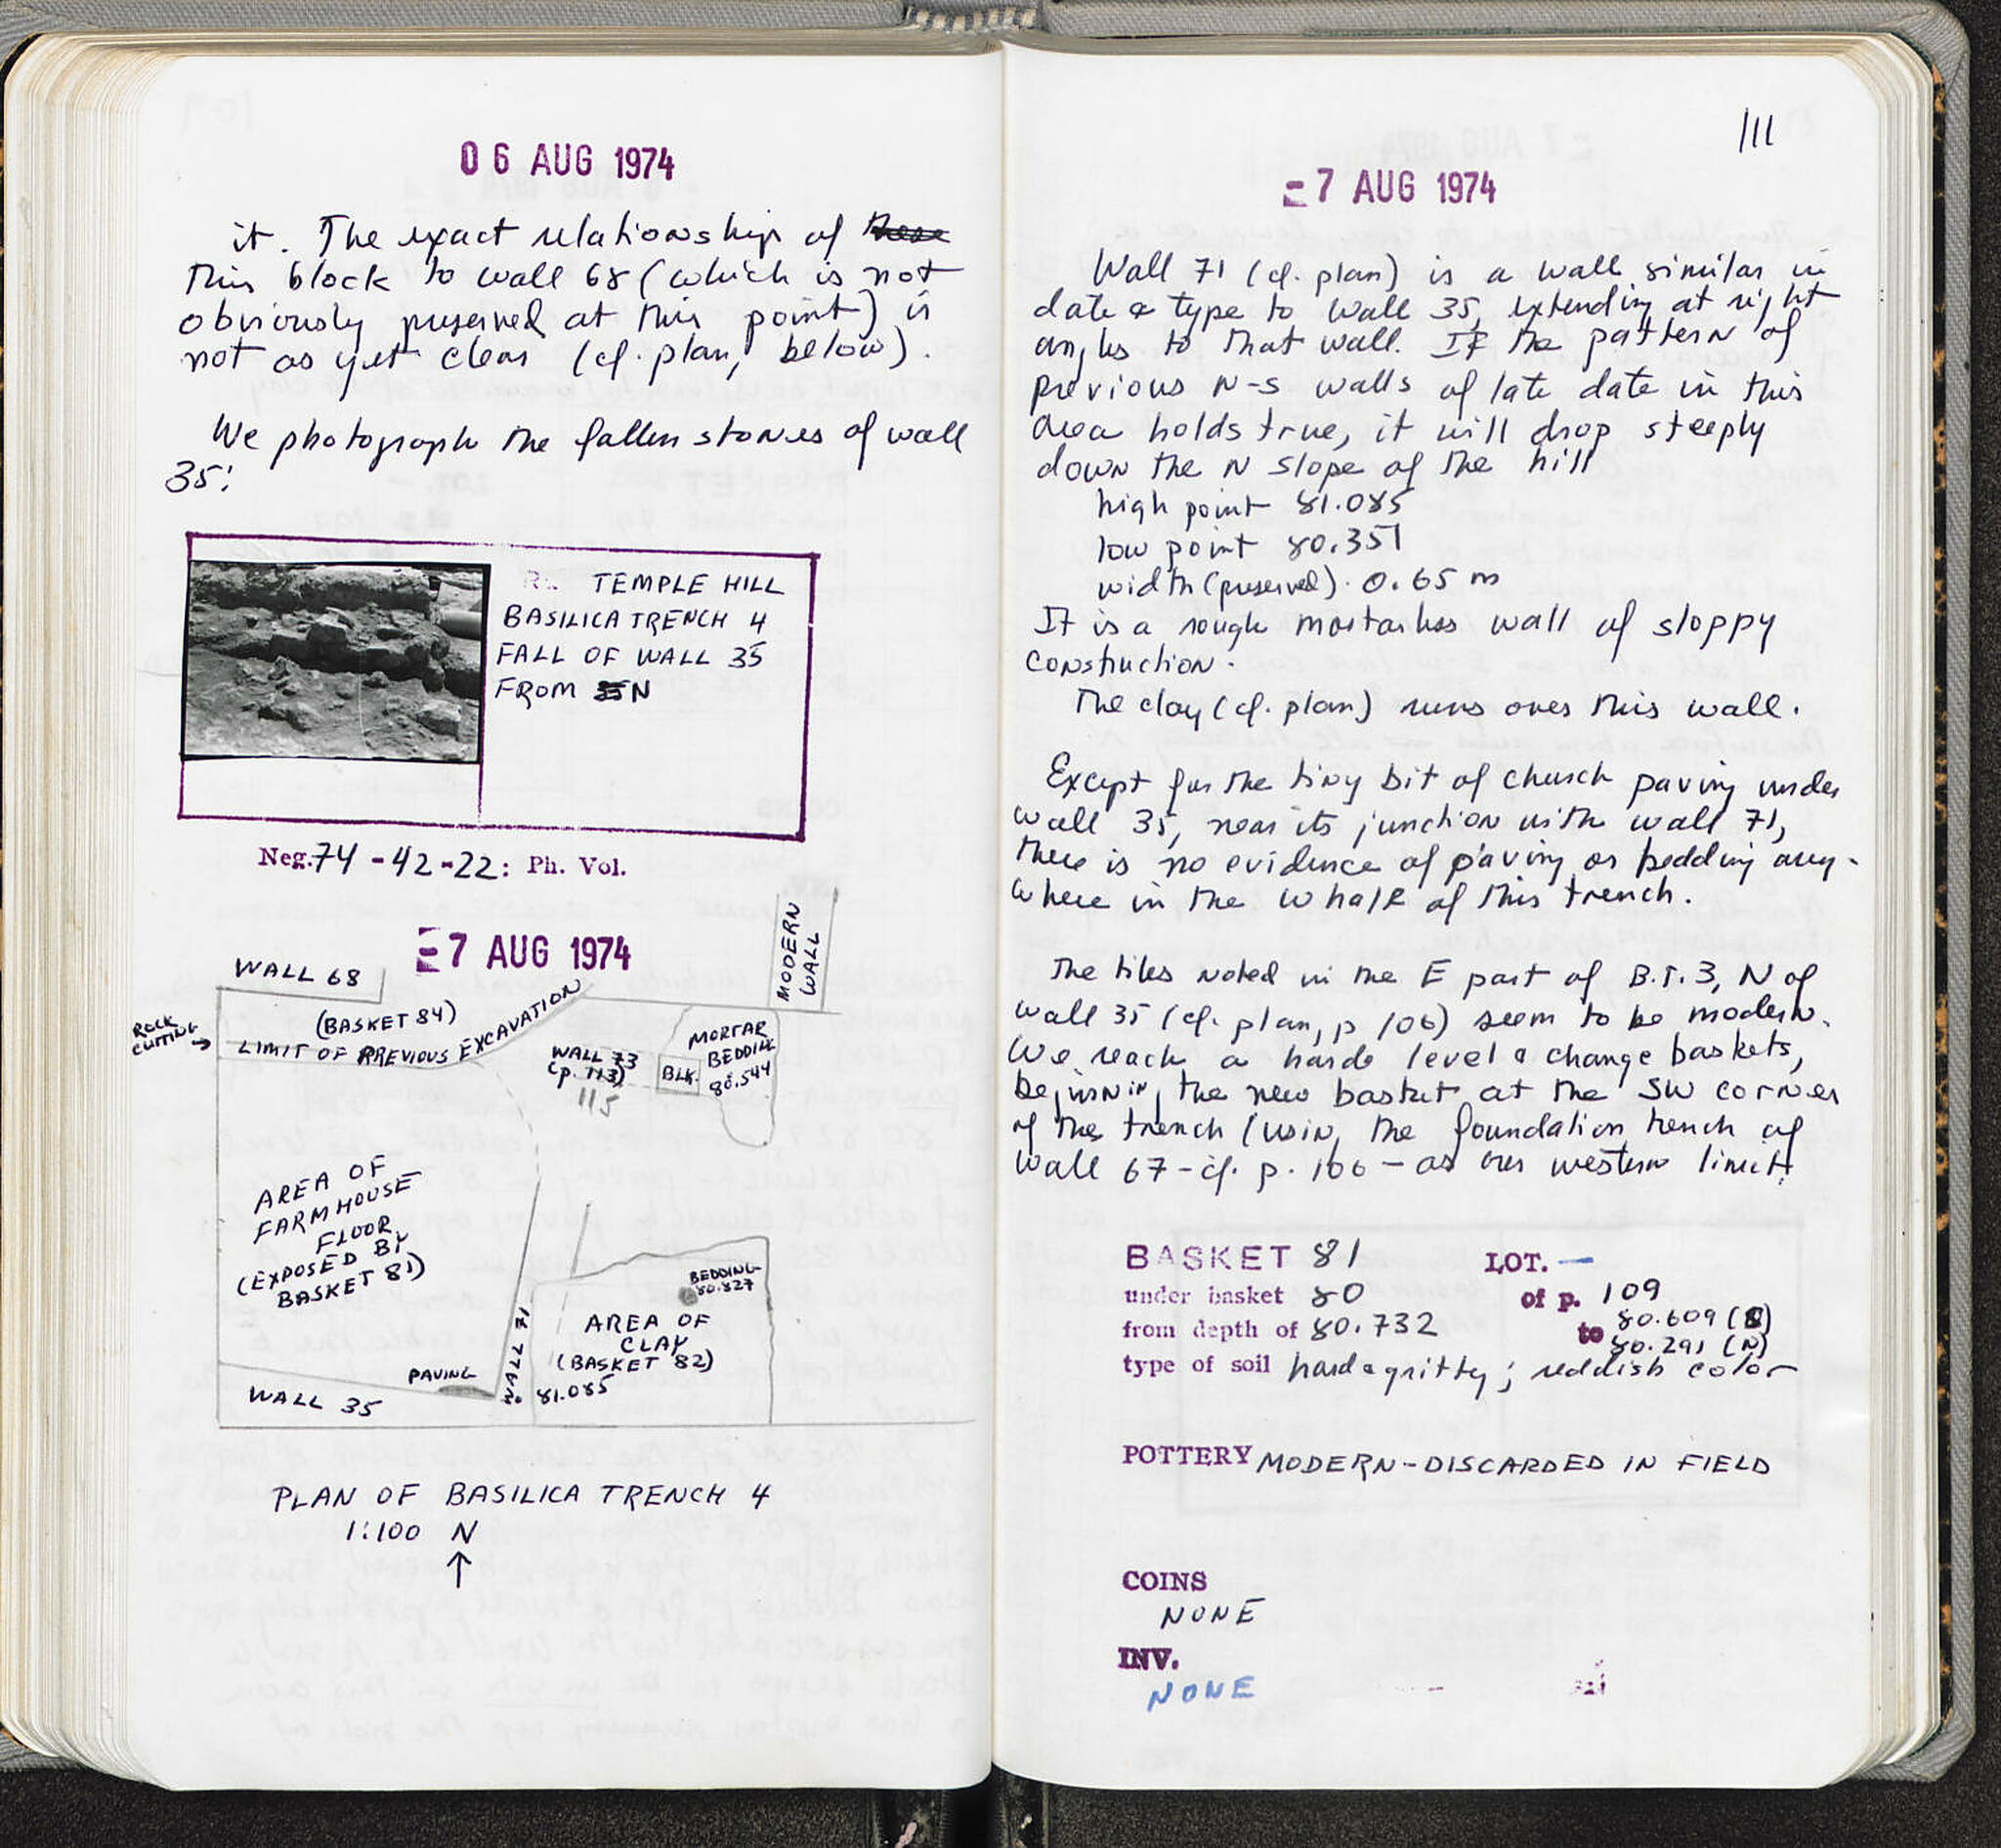 06 AUG 1974
it. The exact relationship of these
this block to wall 68 (which is not
obviously preserved at this point) is
not as yet clear (cf. plan, below).
We photograph the fallen stones of wall
35:
TEMPLE HILL
BASILICA TRENCH 4
FALL OF WALL 35
FROM N
Neg. 74-42-22: Ph. Vol.
7 AUG 1974
MODERN
WALL
WALL 68
(BASKET 84)
ROCK
CUTTING
LIMIT OF PREVIOUS EXCAVATION
WALL 73
(p. 113)
115
BLK.
MORTAR
BEDDING
80.544
AREA OF
FARMHOUSE
FLOOR
(EXPOSED BY
BASKET 81)
BEDDING
80.827
AREA OF
CLAY
(BASKET 82)
81.085
WALL 71
PAVING
WALL 35
PLAN OF BASILICA TRENCH 4
1:100 N
111
7 AUG 1974
Wall 71 (cf. plan) is a wall similar in
date & type to Wall 35, extending at right
angles to that wall. If the pattern of
previous N-S walls of late date in this
area holds true, it will drop steeply
down the N slope of the hill
high point 81.085
low point 80.351
width (preserved). 0.65 m
It is a rough mortarless wall of sloppy
construction.
The clay (cf. plan) runs over this wall.
Except for the tiny bit of church paving under
wall 35, near its junction with wall 71,
there is no evidence of paving or bedding any-
where in the whole of this trench.
The tiles noted in the E part of B.T. 3, N of
wall 35 (cf. plan, p 106) seem to be modern.
We reach a hard level & change baskets,
beginning the new basket at the SW corner
of the trench (using the foundation trench of
Wall 67 - cf. p. 106 - as our western limit.
BASKET 81 LOT. —
under basket 80 of p. 109
from depth of 80.732 to 80.609 (S)
80.291 (N)
type of soil hard & gritty; reddish color
POTTERY MODERN - DISCARDED IN FIELD
COINS
NONE
INV.
NONE